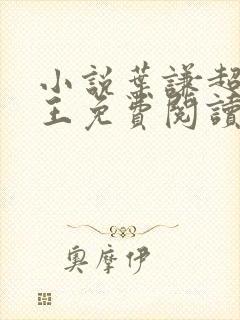 小說葉謙超
王免費閱讀
奧摩伊